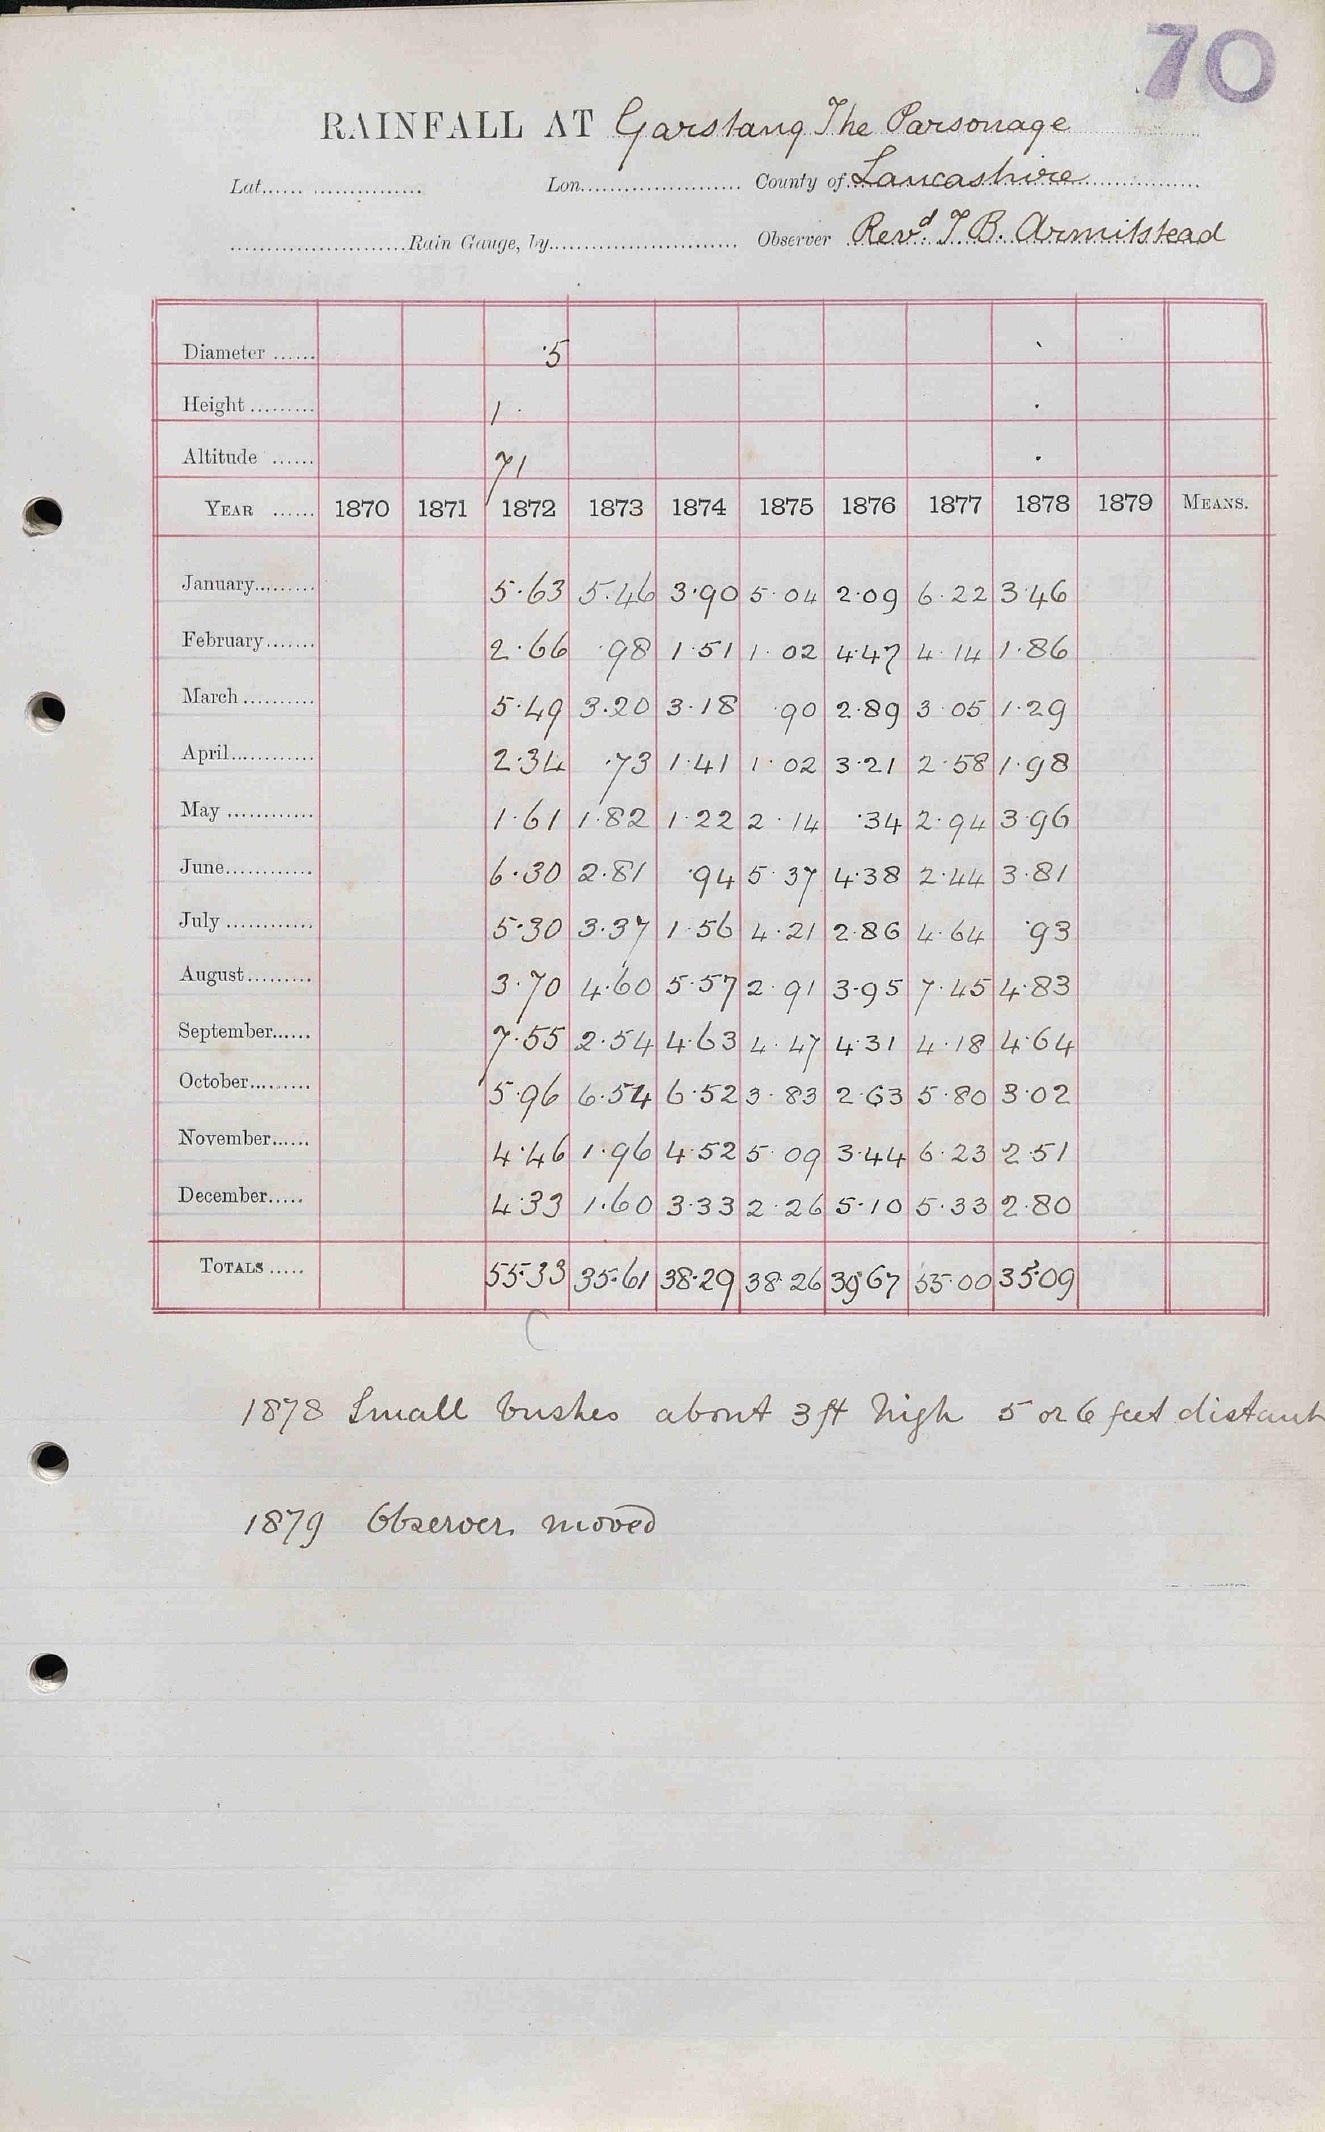 70
RAINFALL AT Garstang The Parsonage
Lat. Lon. County of Lancashire
Rain Gauge, by Observer Revd. T. B. Armitstead
Diameter ·5
Height 1·
Altitude 71
YEAR 1870 1871 1872 1873 1874 1875 1876 1877 1878 1879 MEANS.
January 5·63 5·46 3·90 5·04 2·09 6·22 3·46
February 2·66 ·98 1·51 1·02 4·47 4·14 1·86
March 5·49 3·20 3·18 ·90 2·89 3·05 1·29
April 2·34 ·73 1·41 1·02 3·21 2·58 1·98
May 1·61 1·82 1·22 2·14 ·34 2·94 3·96
June 6·30 2·81 ·94 5·37 4·38 2·44 3·81
July 5·30 3·37 1·56 4·21 2·86 4·64 ·93
August 3·70 4·60 5·57 2·91 3·95 7·45 4·83
September 7·55 2·54 4·63 4·47 4·31 4·18 4·64
October 5·96 6·54 6·52 3·83 2·63 5·80 3·02
November 4·46 1·96 4·52 5·09 3·44 6·23 2·51
December 4·33 1·60 3·33 2·26 5·10 5·33 2·80
TOTALS 55·33 35·61 38·29 38·26 39·67 55·00 35·09
1878 Small bushes about 3 ft high 5 or 6 feet distant
1879 Observer moved